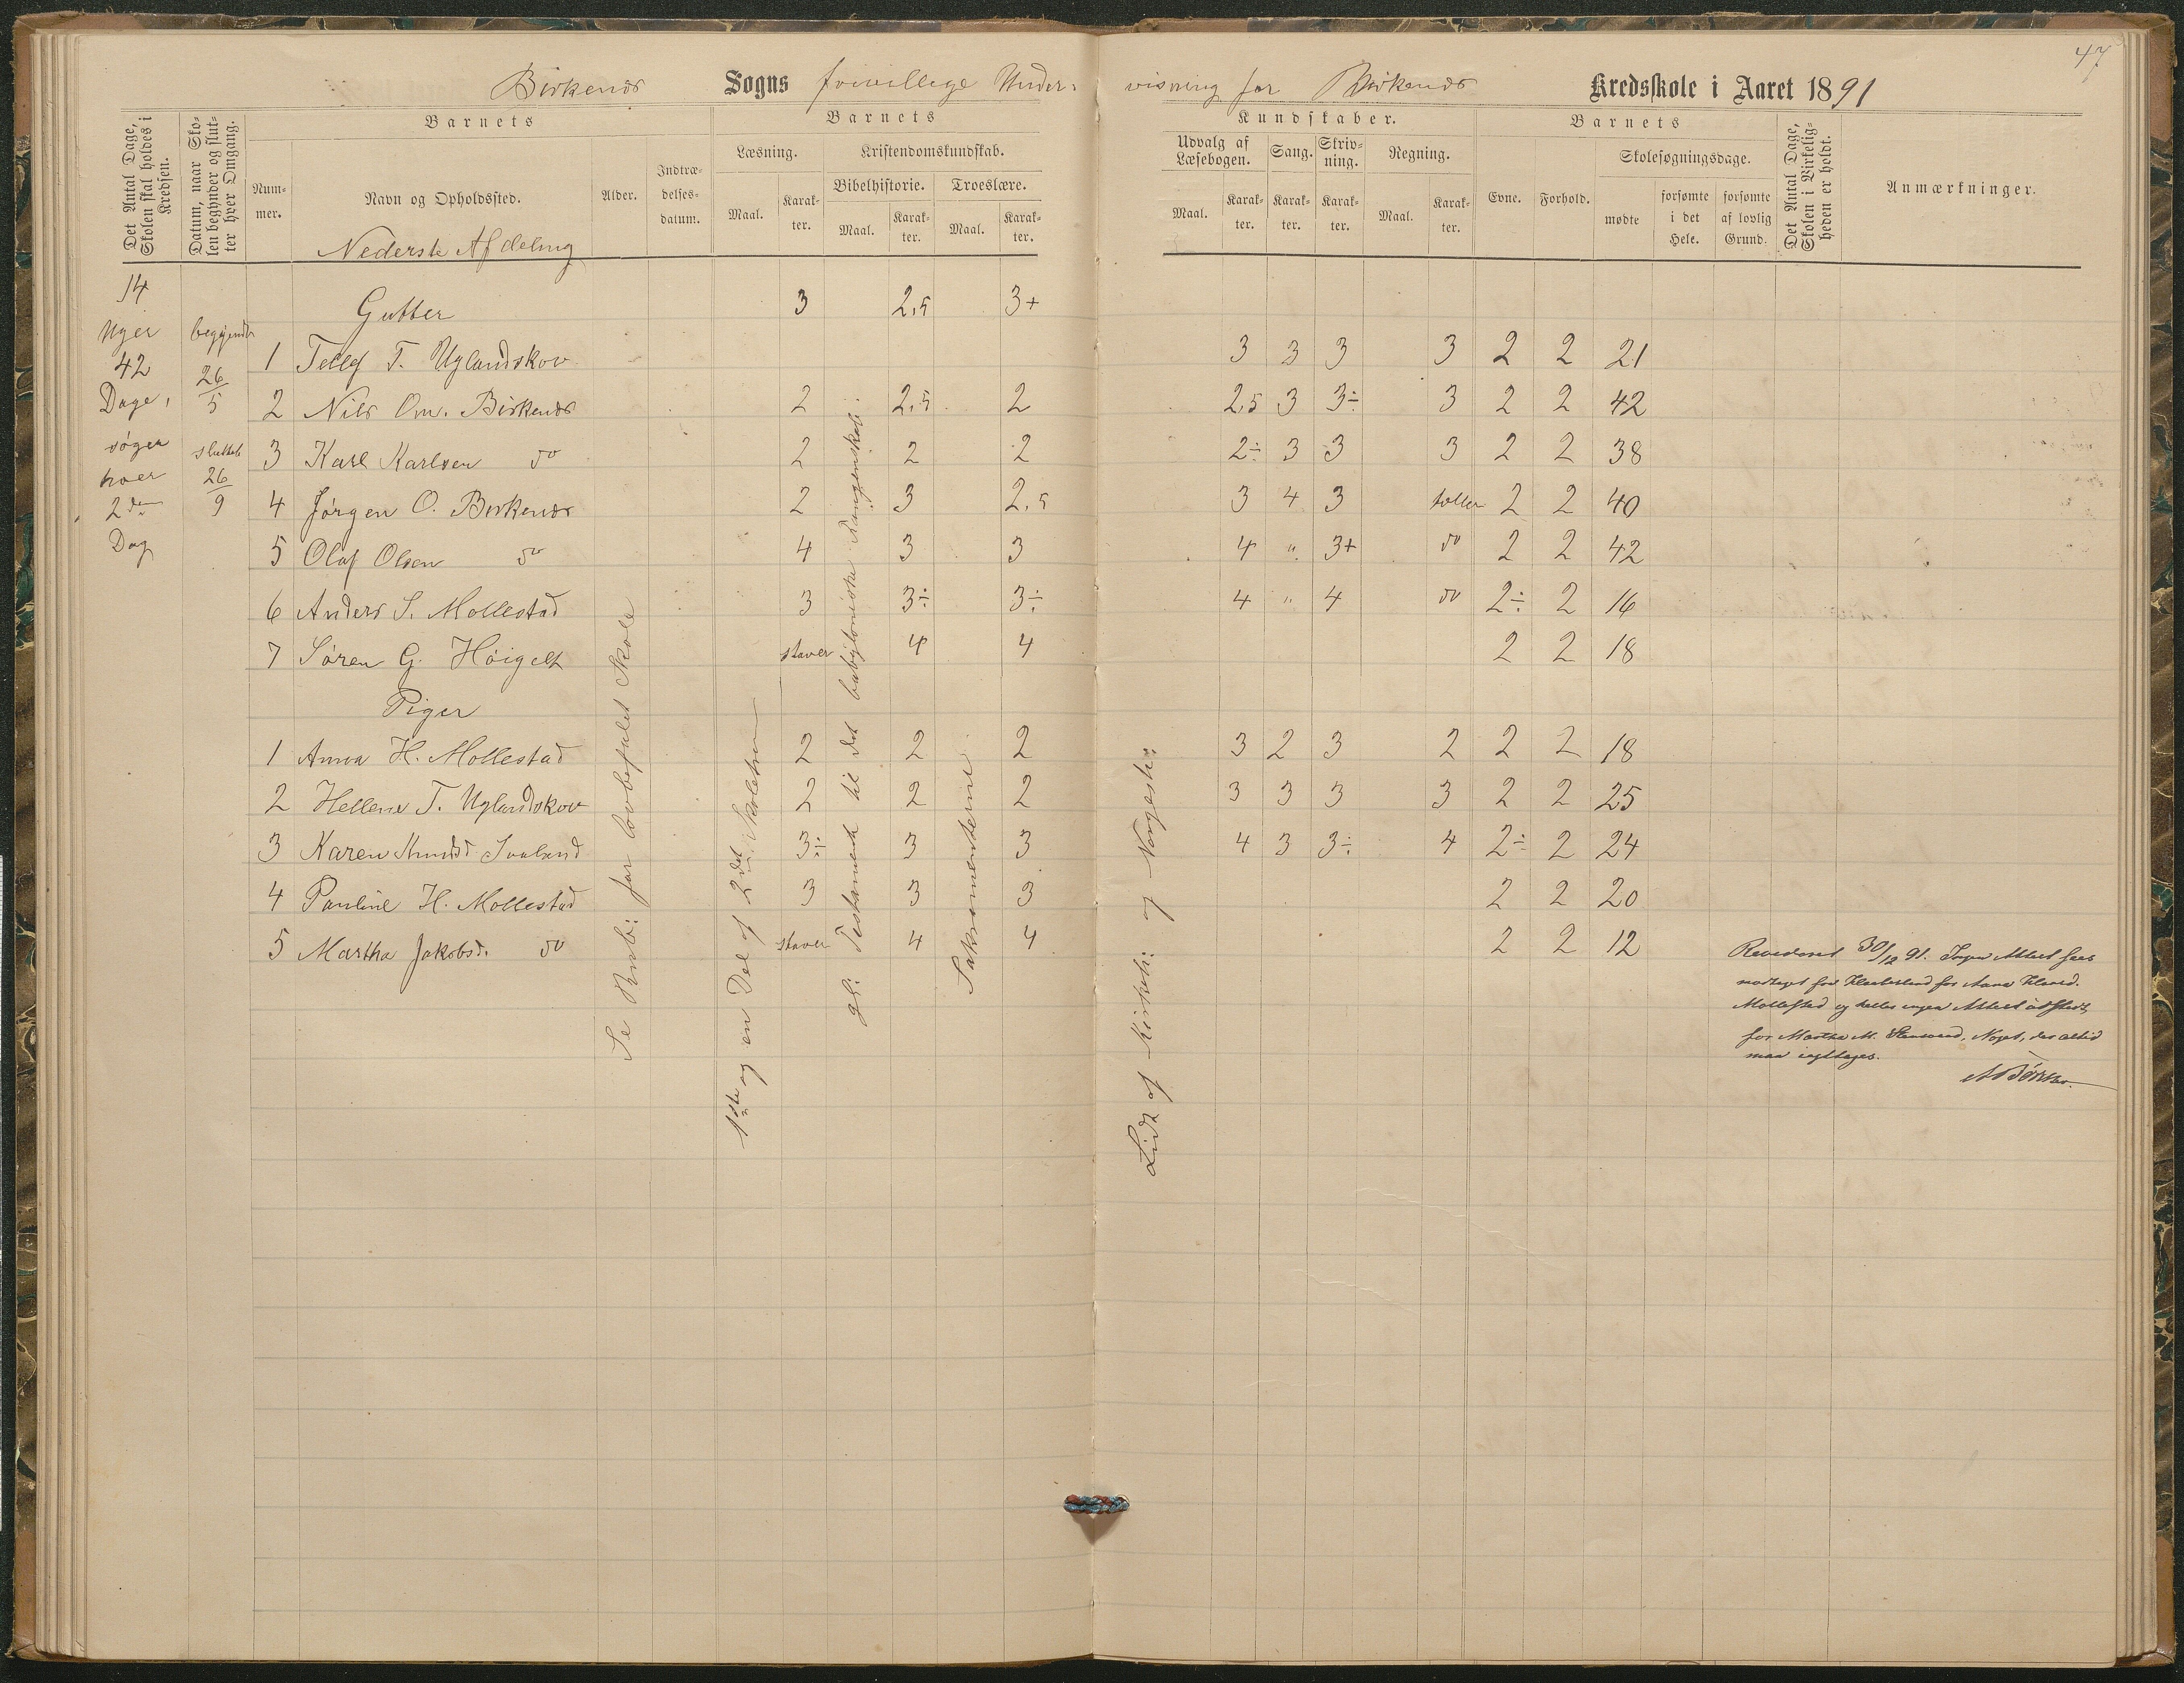 47
Birkenes Sogns frivillige Under: visning for Birkenes Kredsskole i Aaret 1891
Det Antal Dage, Skolen skal holdes i Kredsen.
Datum, naar Skolen begynder og slutter hver Omgang.
Barnets
Nummer.
Navn og Opholdssted.
Alder.
Indtrædelsesdatum.
Barnets
Læsning.
Maal.
Karakter.
Kristendomskundskab.
Bibelhistorie.
Maal.
Karakter.
Troeslære.
Maal.
Karakter.
Kundskaber.
Udvalg af Læsebogen.
Maal.
Karakter.
Sang.
Karakter.
Skrivning.
Karakter.
Regning.
Maal.
Karakter.
Barnets
Evne.
Forhold.
Skolesøgningsdage.
mødte
forsømte i det Hele.
forsømte af lovlig Grund.
Det Antal Dage, Skolen i Virkeligheden er holdt.
Anmærkninger.
Nederste Afdeling
14
Uger
42
Dage,
søger
hver
2den
Dag
begyndte
26/5
sluttet
26/9
Gutter 3 2,5 3+
1 Tellef T. Uglandskov 3 3 3 3 2 2 21
2 Nils Om. Birkenes 2 2,5 2 2,5 3 3÷ 3 2 2 42
3 Karl Karlsen do 2 2 2 2÷ 3 3 3 2 2 38
4 Jørgen O. Birkenes 2 3 2,5 3 4 3 tæller 2 2 40
5 Olaf Olsen do 4 3 3 4 " 3+ do 2 2 42
6 Anders S. Mollestad 3 3÷ 3÷ 4 " 4 do 2÷ 2 16
7 Søren G. Høigilt staver 4 4 2 2 18
Piger
1 Anna H. Mollestad 2 2 2 3 2 3 2 2 2 18
2 Hellene T. Uglandskov 2 2 2 3 3 3 3 2 2 25
3 Karen Knudsd 3÷ 3 3 4 3 3÷ 4 2÷ 2 24
4 Pauline H. Mollestad 3 3 3 2 2 20
5 Martha Jakobsd. do staver 4 4 2 2 12
Se Rub: for lovbefalet Skole
1ste og en Del af 2det Skoletrin
gl: Testamente til det babyloniske Fangenskab.
Sakramenterne
Lidt af Kirkeh: og Norgesh:
Revideret 30/12 91. Ingen Attest sees
modtaget for
Mollestad og heller ingen Attest udstedt,
for Martha M. Noget, der altid
maa iagttages.